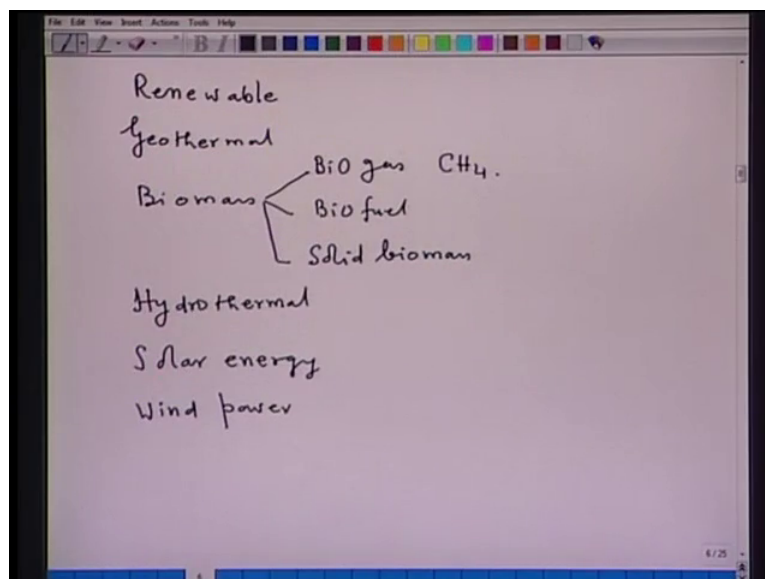 File Edit View Insert Actions Tools Help
B I
Renewable
Geothermal
Bio gas CH4.
Biomass
Bio fuel
Solid biomass
Hydrothermal
Solar energy
Wind power
6/25